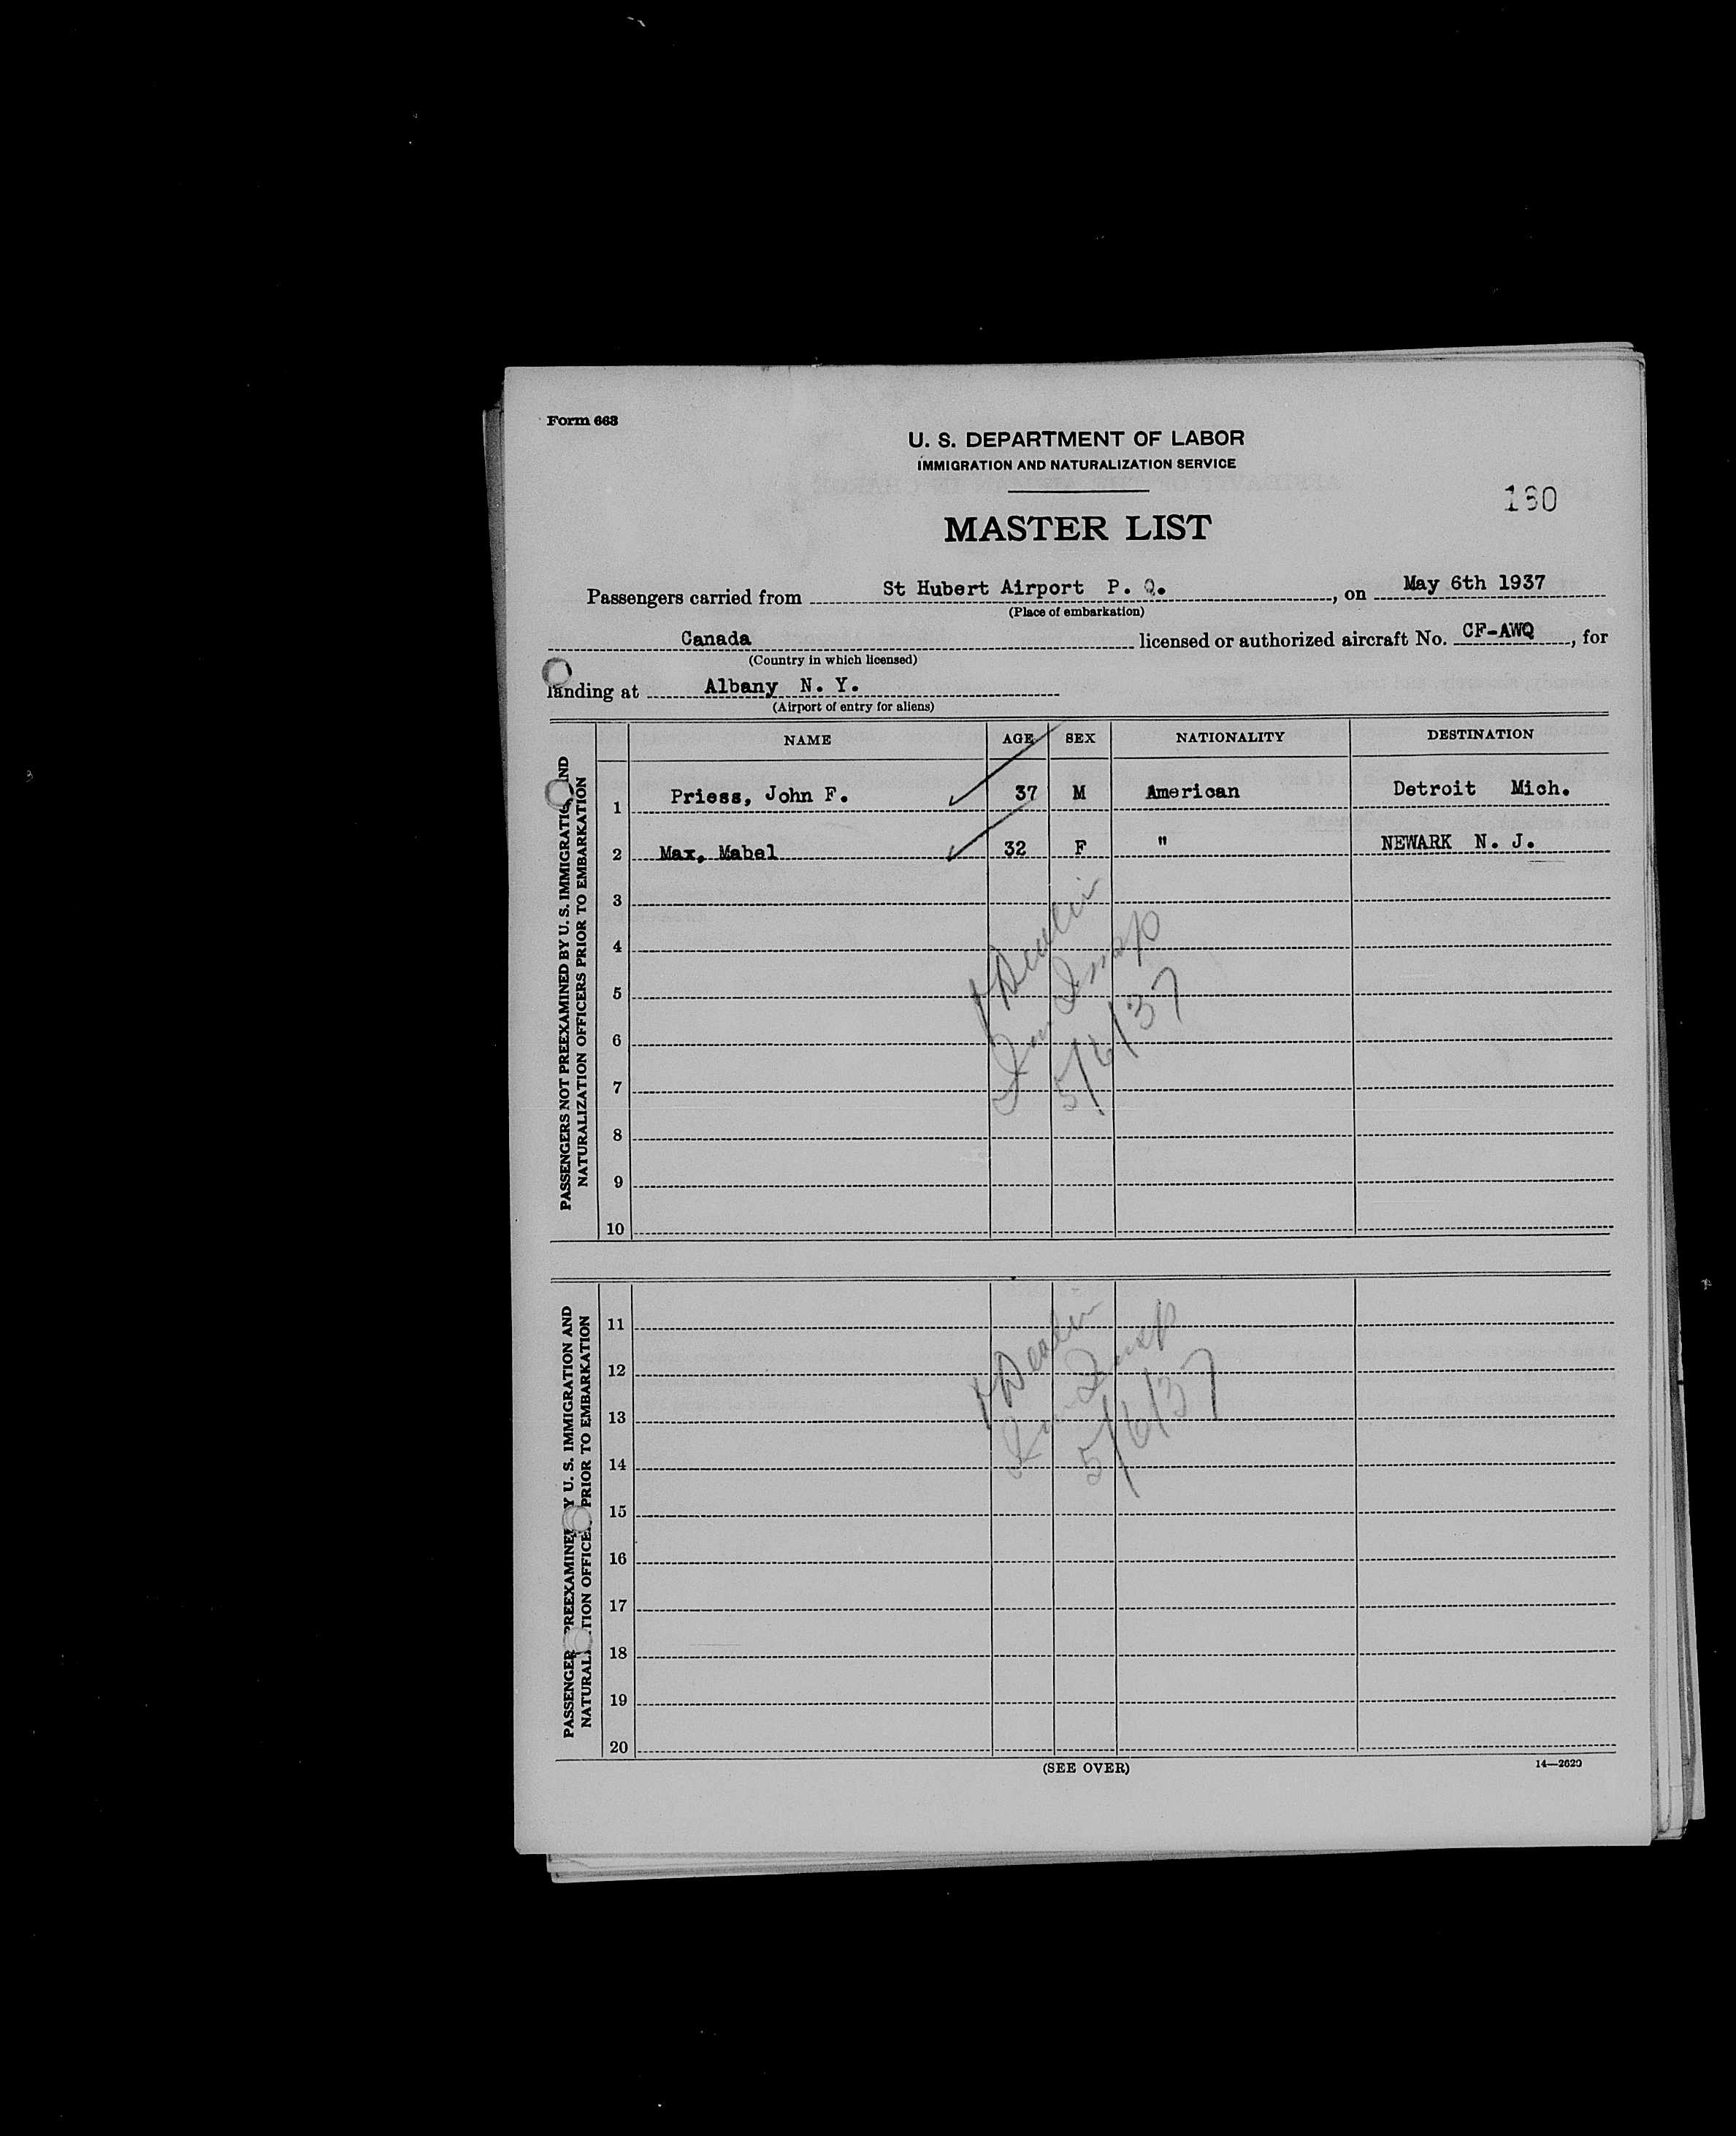 Form 663
U. S. DEPARTMENT OF LABOR
IMMIGRATION AND NATURALIZATION SERVICE
180
MASTER LIST
Passengers carried from St Hubert Airport P. Q., on May 6th 1937
(Place of embarkation)
Canada licensed or authorized aircraft No. CF-AWQ, for
(Country in which licensed)
landing at Albany N. Y.
(Airport of entry for aliens)
NAME AGE SEX NATIONALITY DESTINATION
PASSENGERS NOT PREEXAMINED BY U. S. IMMIGRATION AND
NATURALIZATION OFFICERS PRIOR TO EMBARKATION
1 Priess, John F. 37 M American Detroit Mich.
2 Max, Mabel 32 F " NEWARK N. J.
3
4
5
6
7
8
9
10
Imm Insp
5/6/37
PASSENGER PREEXAMINED BY U. S. IMMIGRATION AND
NATURALIZATION OFFICERS PRIOR TO EMBARKATION
11
12
13
14
15
16
17
18
19
20
Imm Insp
5/6/37
(SEE OVER)
14—2620